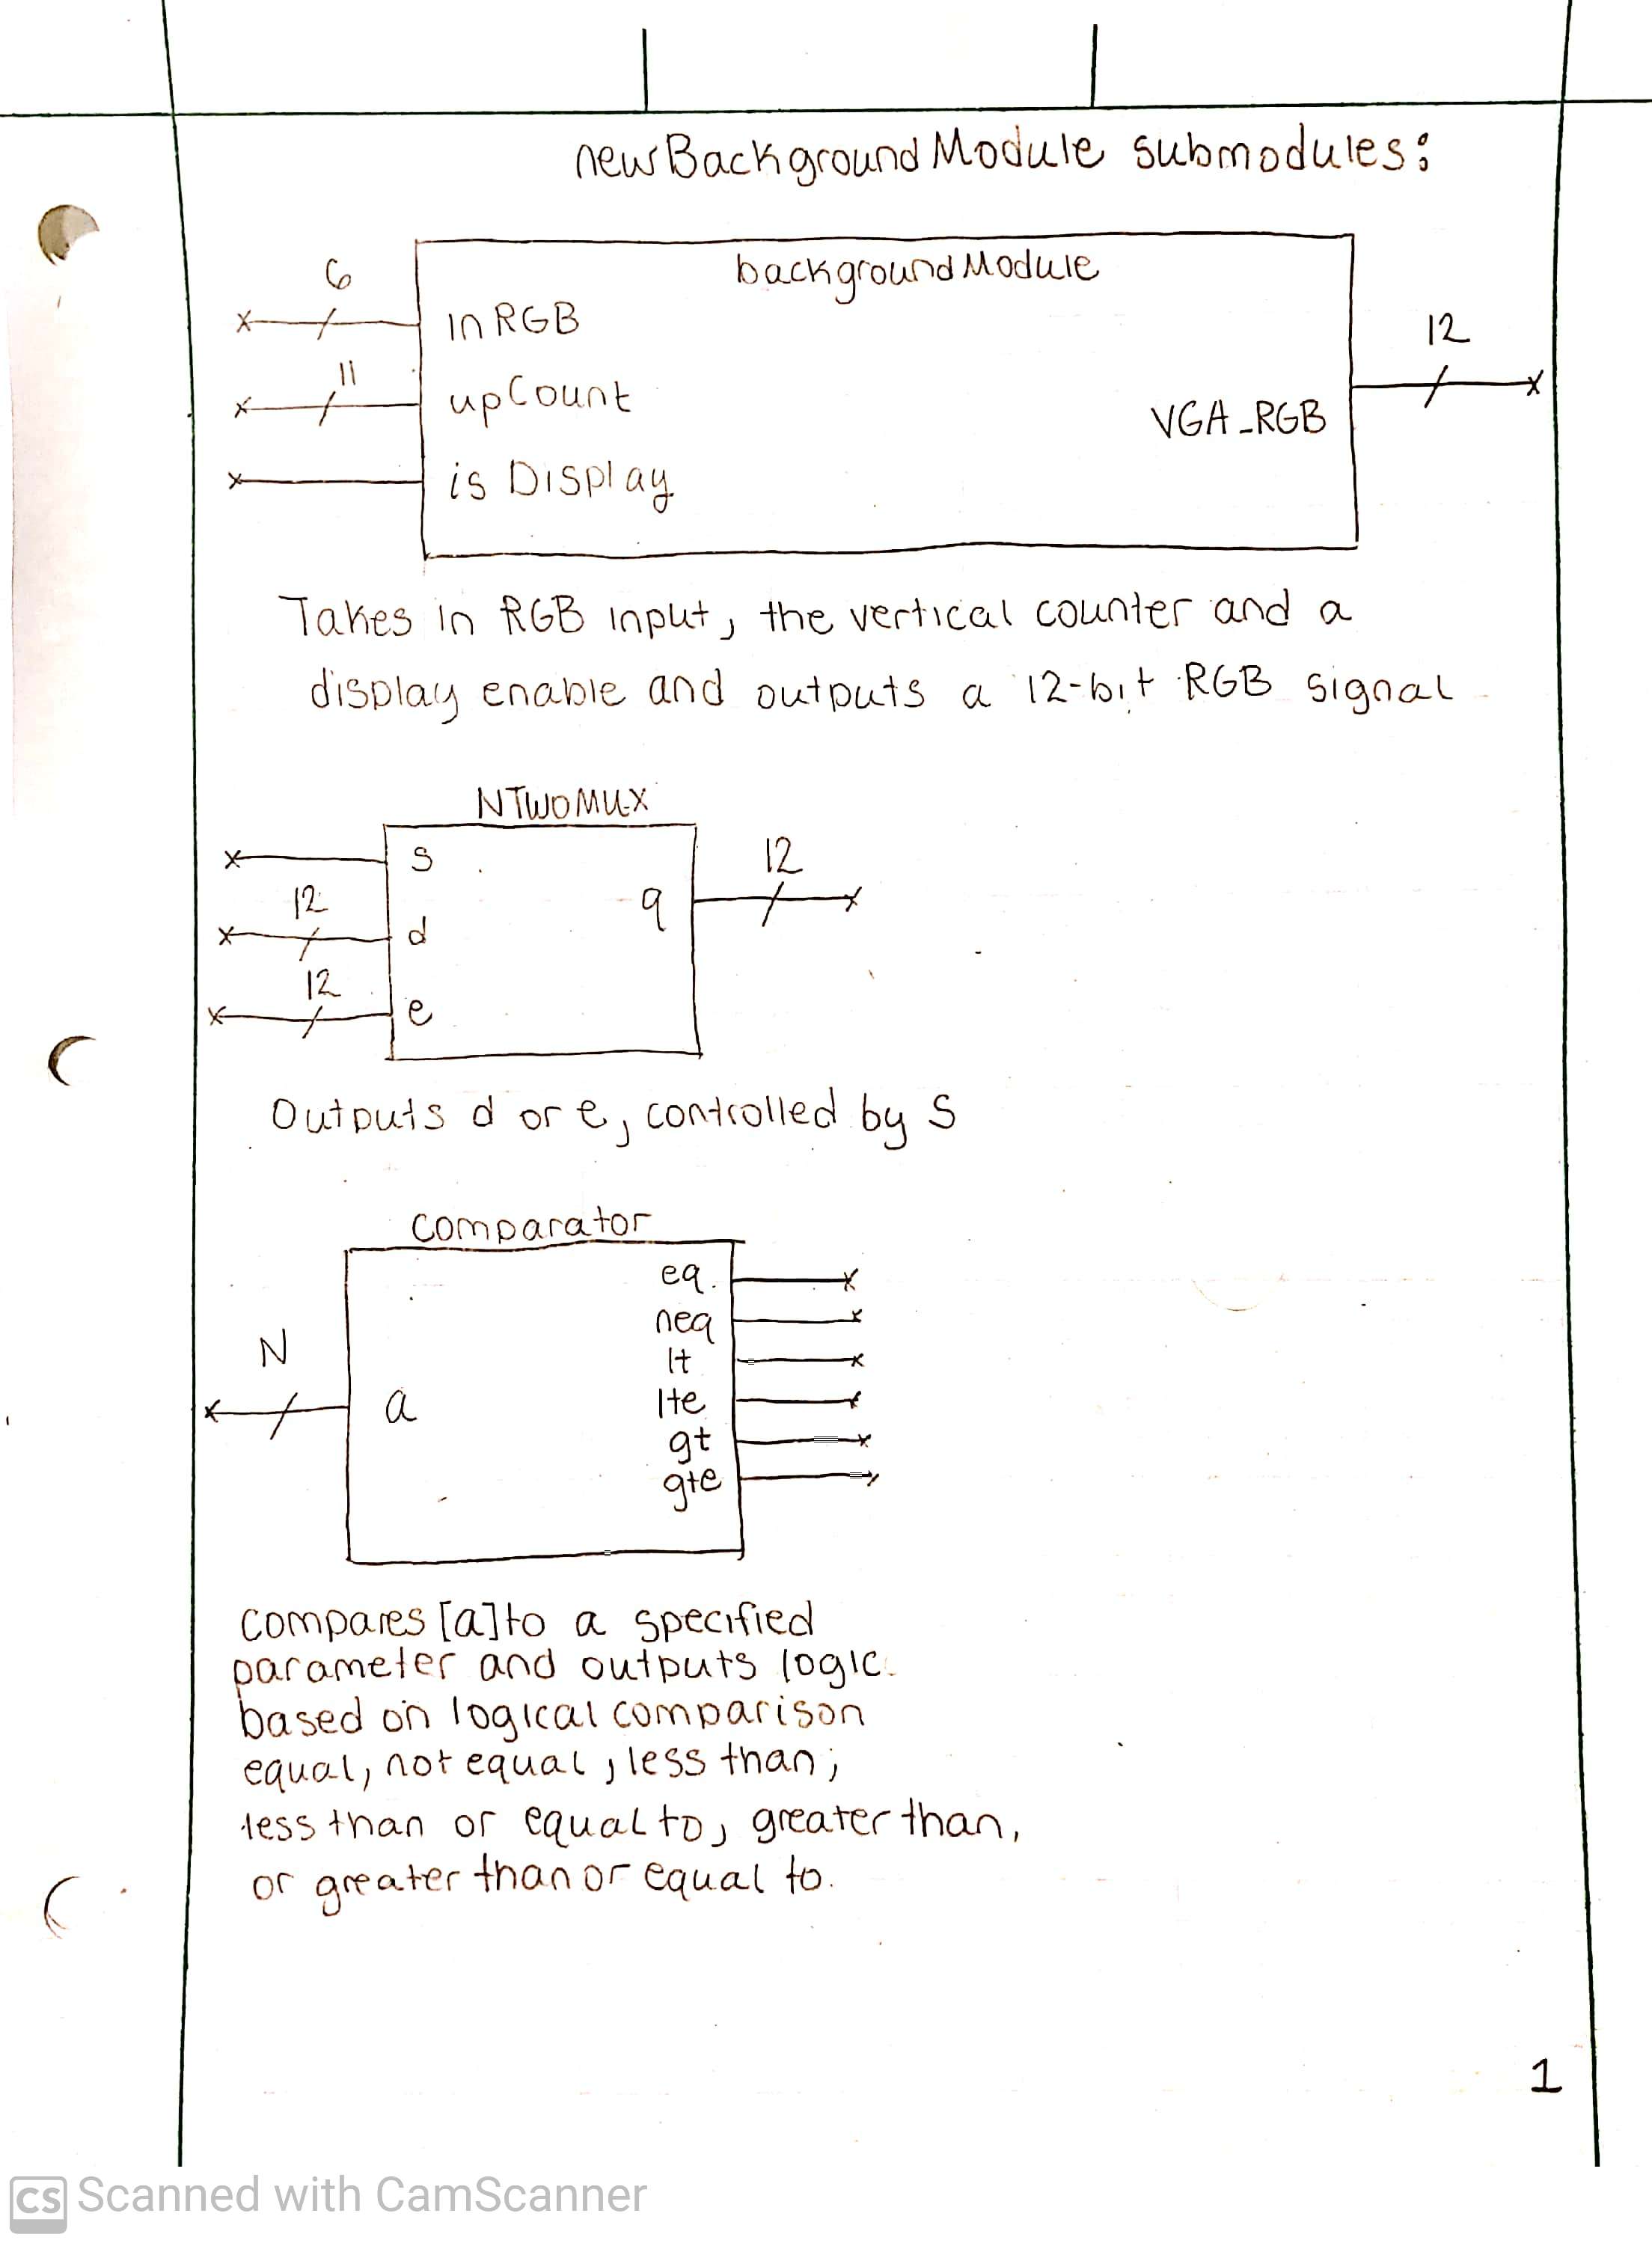 newBackground Module submodules:
backgroundModule
6
inRGB
12
11
upCount
VGA_RGB
isDisplay
Takes in RGB input, the vertical counter and a
display enable and outputs a 12-bit RGB signal
NTWOMUX
s
12
12
q
d
12
e
Outputs d or e, controlled by S
comparator
eq
neq
N
lt
a
lte
gt
gte
compares [a] to a specified
parameter and outputs logic
based on logical comparison
equal, not equal, less than,
less than or equal to, greater than,
or greater than or equal to.
1
CS Scanned with CamScanner